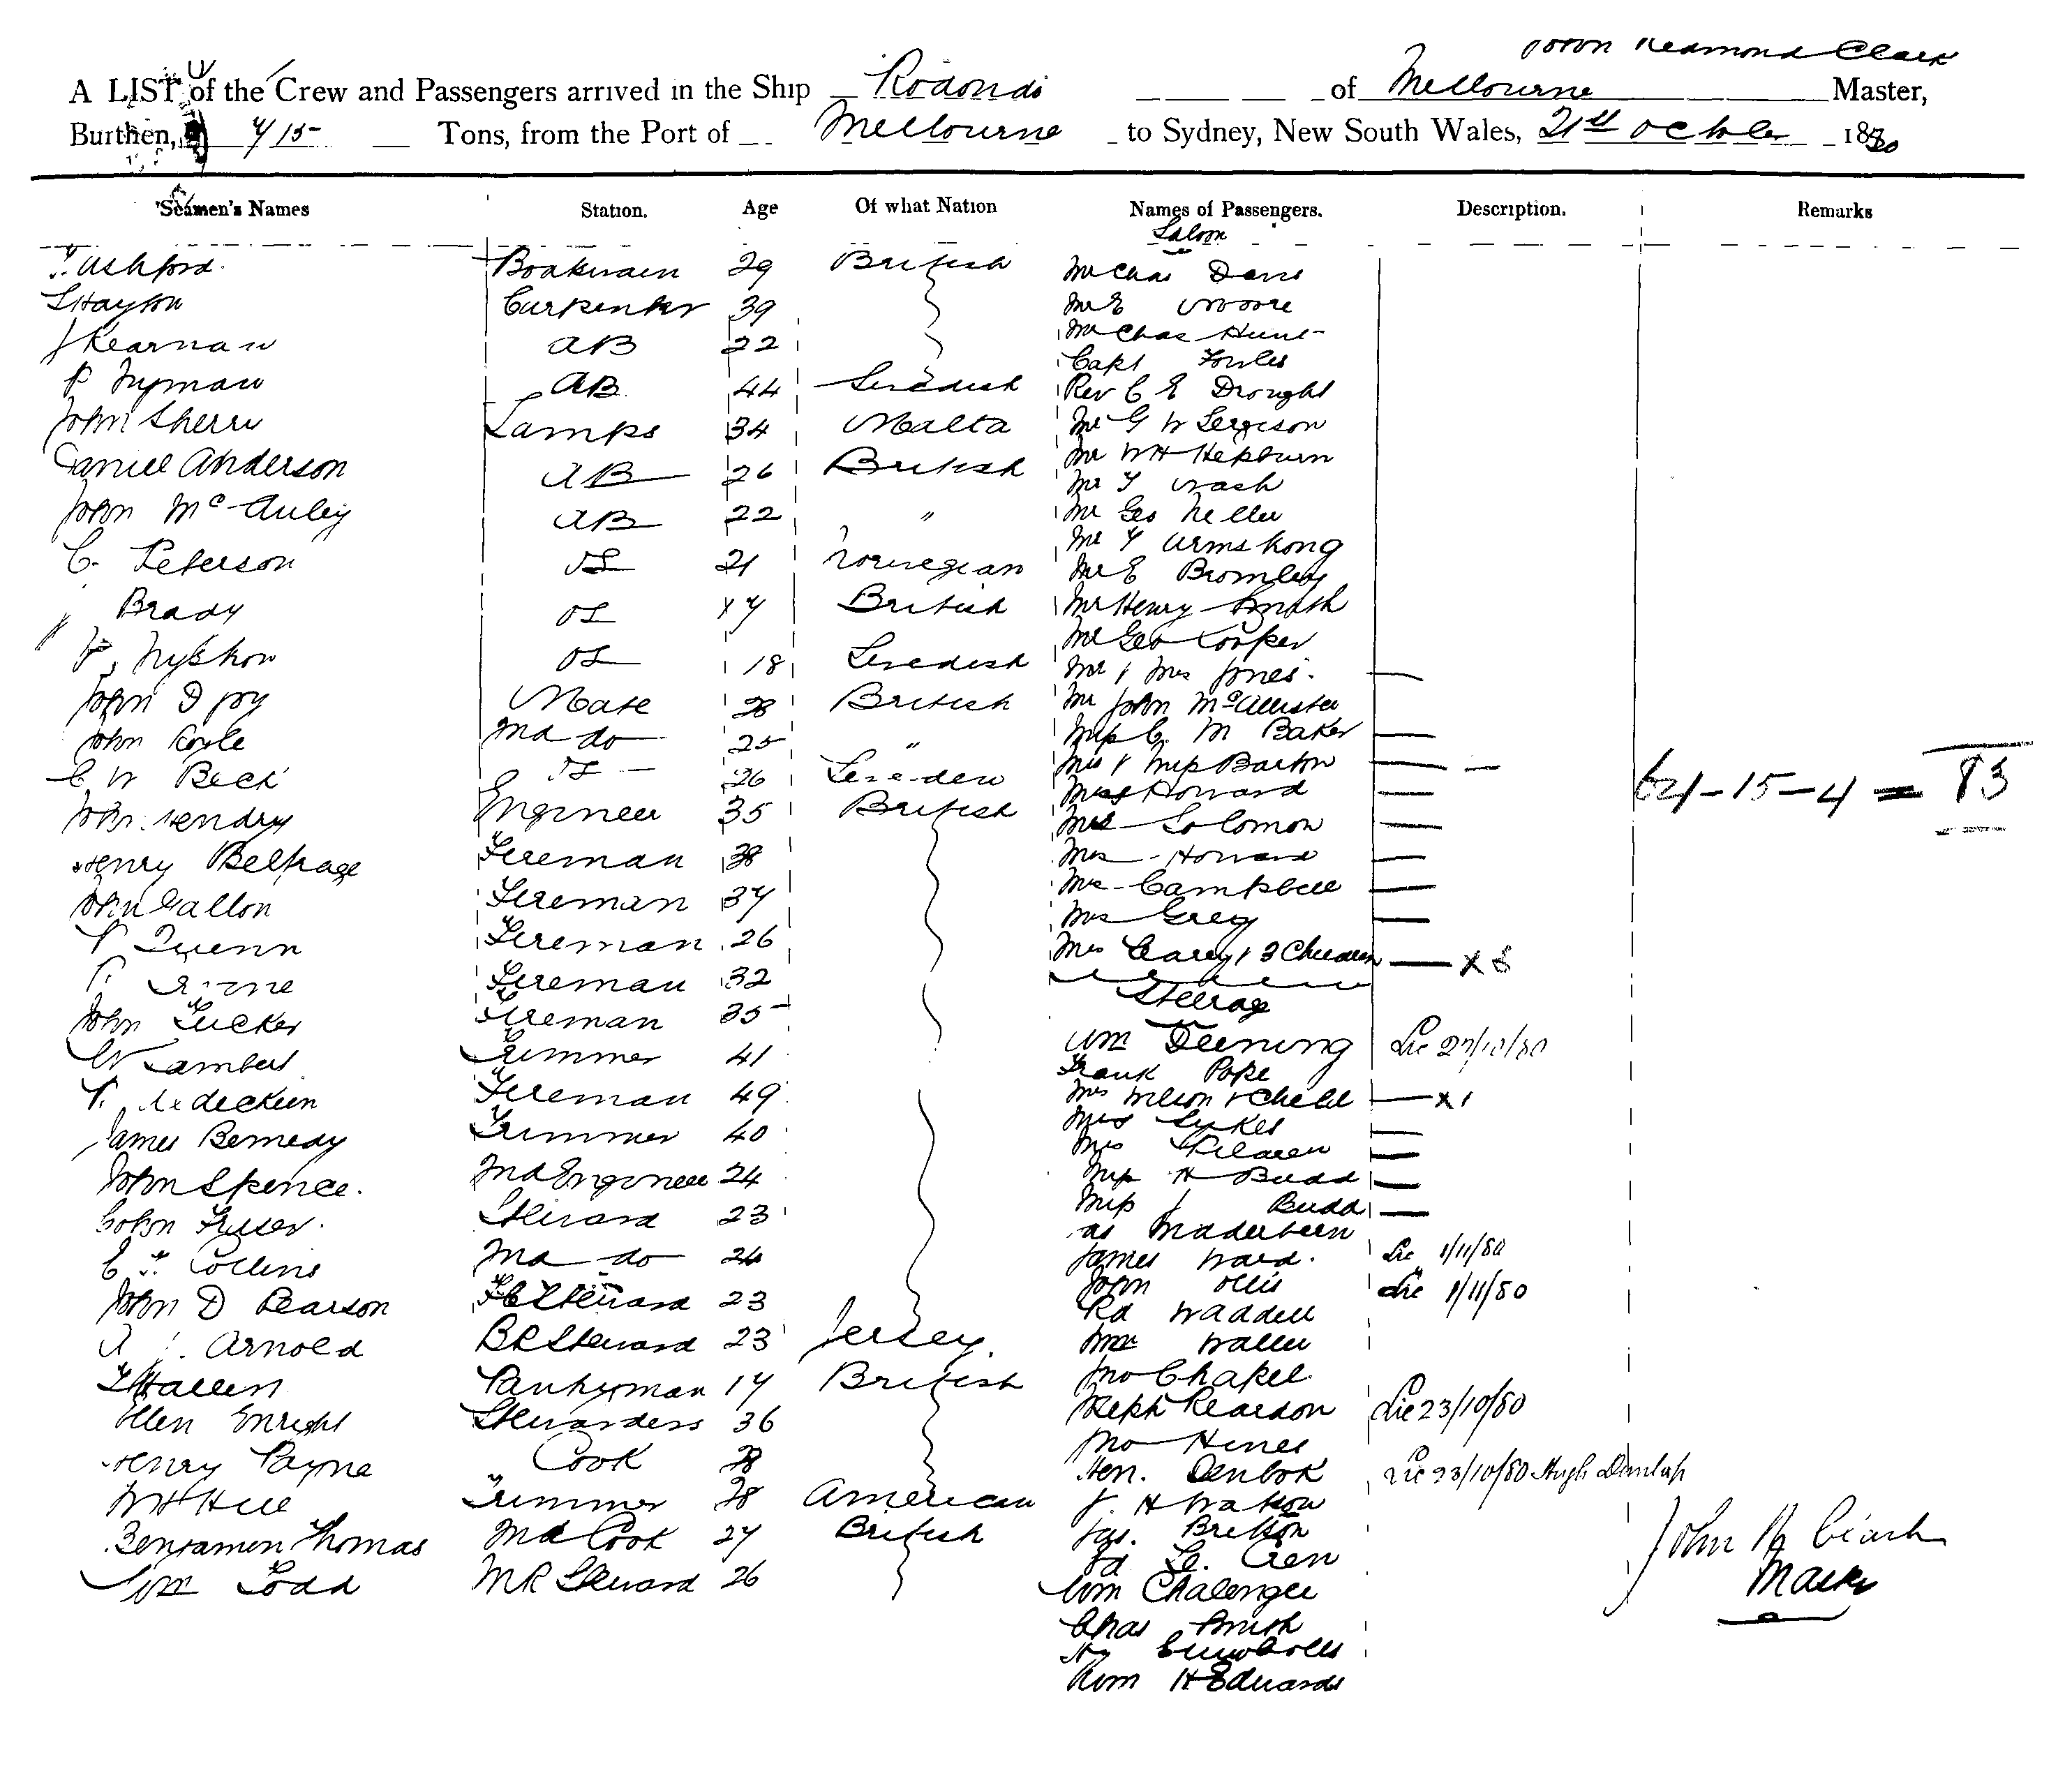 John Redmond Clark
A LIST of the Crew and Passengers arrived in the Ship Rodondo of Melbourne Master,
Burthen, 715 Tons, from the Port of Melbourne to Sydney, New South Wales, 21st October 1880
Seamen's Names Station. Age Of what Nation Names of Passengers. Description. Remarks
Saloon
Ashford. Boatswain 29 British Mr Chas Davis
Hayton Carpenter 39 Mr E Moore
J Kearnan AB 22 Mr Chas Hunt
Capt Fowler
P Nyman AB 44 Swedish Rev C E Drought
John Sherri Lamps 34 Malta Mr G W
Daniel Anderson AB 26 British Mr W H Hepburn
Mr T Nash
John McAuley AB 22 " Mr Geo
Mr T Armstrong
C. Peterson OS 21 Norwegian Mr E Bromley
Brady OS 17 British Mr Henry Smith
Mr Geo Cooper
OS 18 Swedish Mr & Mrs Jones.
John D Joy Mate 28 British Mr John McAllister
John Coyle 2nd do 25 " Miss C. M Baker
C W Beck OS 26 Sweden Mrs & Miss Barton
64-15-4 = 83
John Hendry Engineer 35 British Howard
Mrs Solomon
Henry Belfrage Fireman 38 Mrs Howard
John Gallon Fireman 37 Mrs Campbell
Mrs Grey
Quinn Fireman 26 Mrs Carey & 3 Children x 3
Fireman 32 Steerage
John Tucker Fireman 35
W Lambert Trimmer 41 Wm Deening Lic 27/10/80
Frank Pope
Fireman 49 Mrs Wilson & Child x 1
Mrs Sykes
James Bernedy Trimmer 40 Mrs
John Spence. 2nd Engineer 24 Miss H Budd
Miss J Budd
Colin Fraser. Steward 23
E F Collins 2nd do 24 James Ward. Lic 1/11/80
John D Pearson F C Steward 23 John Ollis Lic 1/11/80
Rd Waddell
Arnold B R Steward 23 Jersey.
Hallen Pantryman 17 British Jno Chapel.
Ellen Enright Stewardess 36 Steph Reardon Lic 23/10/80
Jno Hines
Henry Payne Cook 28 Hen. Lic 23/10/80 Hugh Dunlap
W H Hill Trimmer 28 American J. H Watson
Benjamin Thomas 2nd Cook 27 British Jas. Britton
John R Clark
Wm Todd M R Steward 26 Wm Chalenger
Master
Chas Smith
Wm H Edwards